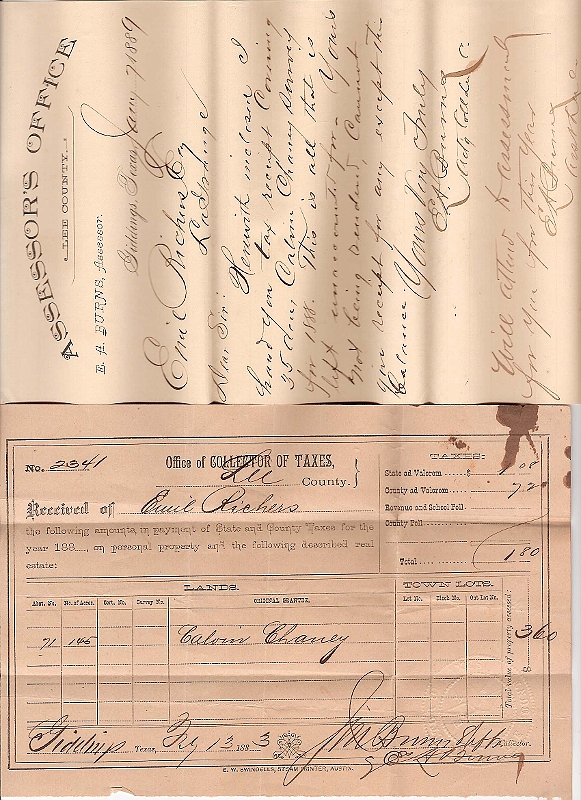 ASSESSOR'S OFFICE
LEE COUNTY.
E. A. BURNS, Assessor.
Giddings, Texas, Jany 7 1889
Emil Richers Esq
LaGrange
Dear Sir:
Herewith inclosed I
hand you tax receipt covering
35 acres Calvin Chaney survey
for 1888. This is all that is
left unaccounted for. Yours
not being rendered, cannot
give receipt for any except this
balance. Yours Very Truly
E A Burns
will attend to assessment
for you for this year
E A Burns
No. 2341
Office of COLLECTOR OF TAXES,
Lee County.
Received of Emil Richers
the following amounts, in payment of State and County Taxes for the
year 188..., on personal property and the following described real
estate:
TAXES:
State ad Valorem $ 1 08
County ad Valorem 72
Revenue and School Poll
County Poll
Total 1 80
LANDS.
TOWN LOTS.
Abst. No. No. of Acres. Cert. No. Survey No. ORIGINAL GRANTEE. Lot No. Block No. Out Lot No.
71 146 Calvin Chaney
Total value of property assessed: $ 360
Giddings Texas, Feby 13 1883
Collector.
E A Burns
E. W. SWINDELLS, STEAM PRINTER, AUSTIN.